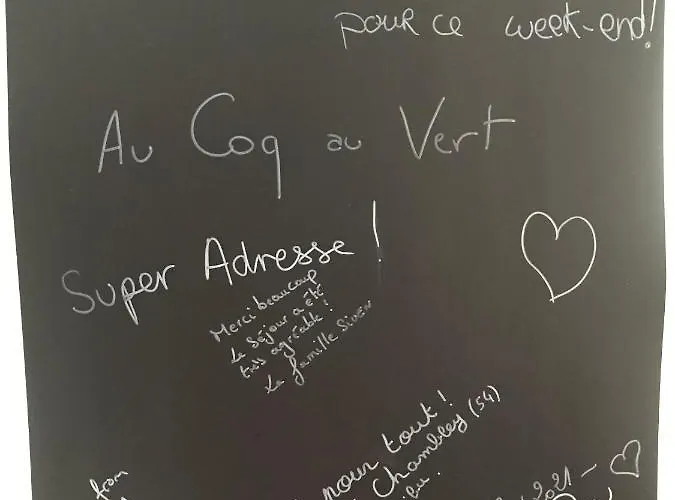 pour ce week-end!
Au Coq au Vert
Super Adresse !
Merci beaucoup
Le séjour a été
très agréable !
La famille
pour tout !
Chambley (54)
from
2021 -